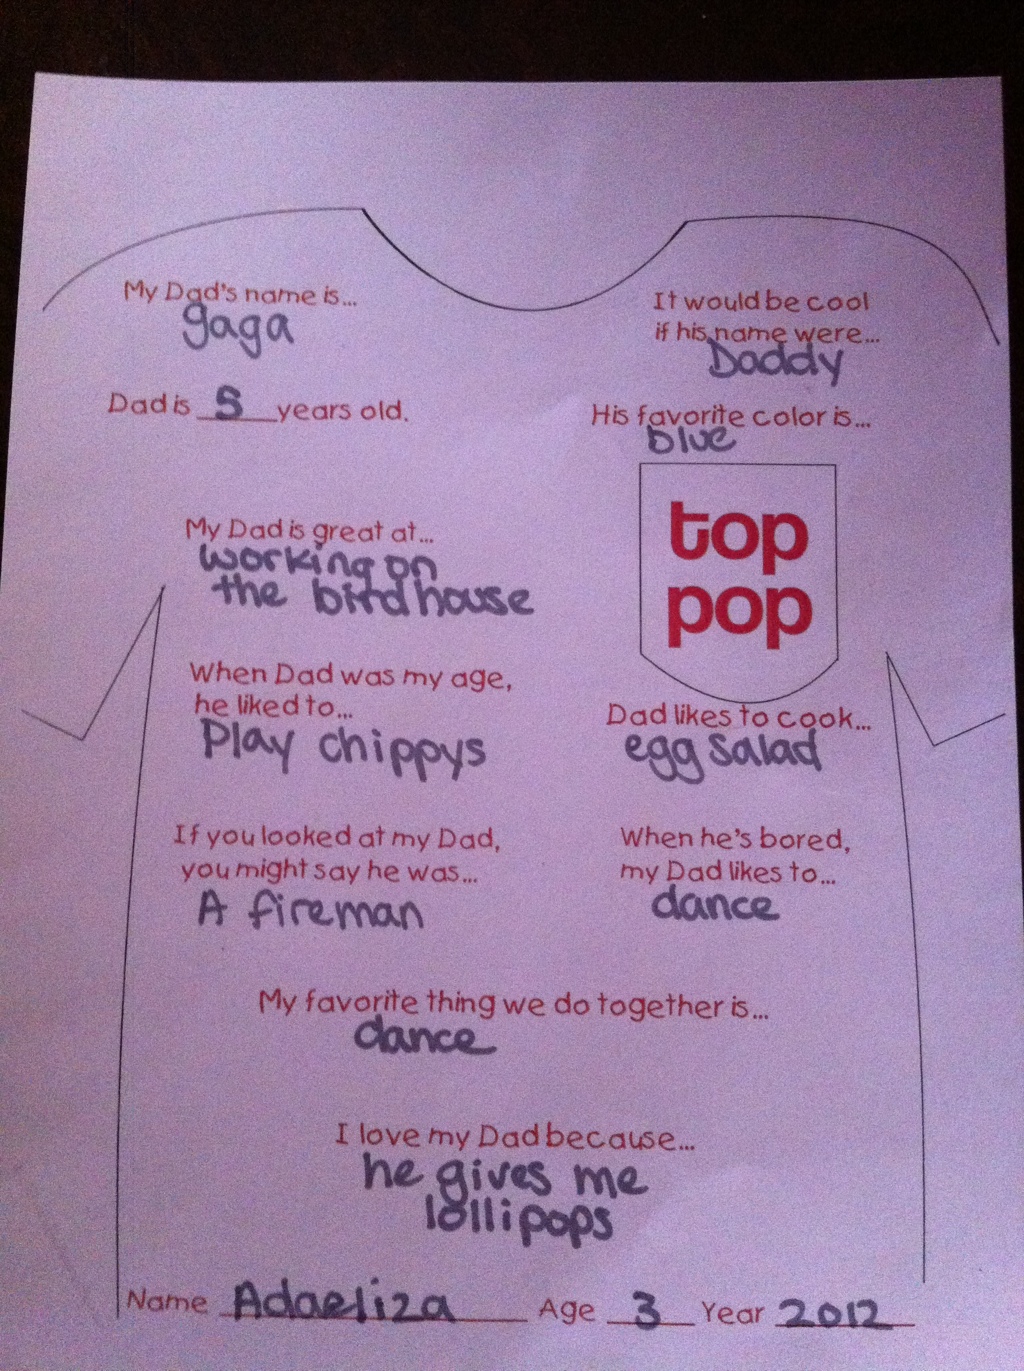 My Dad's name is...
gaga
It would be cool
if his name were...
Daddy
Dad is 5 years old.
His favorite color is...
blue
top
pop
My Dad is great at...
working on
the bird house
When Dad was my age,
he liked to...
Play chippys
Dad likes to cook...
egg salad
If you looked at my Dad,
you might say he was...
A fireman
When he's bored,
my Dad likes to...
dance
My favorite thing we do together is...
dance
I love my Dad because...
he gives me
lollipops
Name Adaeliza Age 3 Year 2012